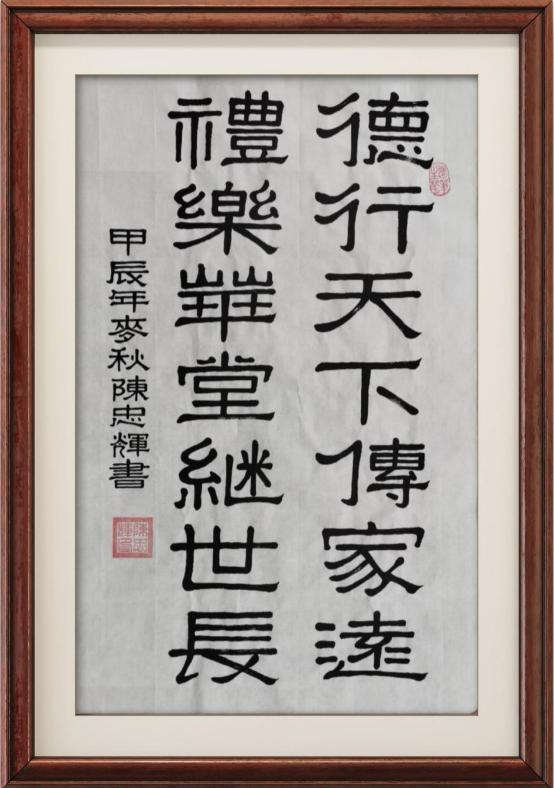 德行天下傳家遠
禮樂華堂継世長
甲辰年麥秋陳忠輝書